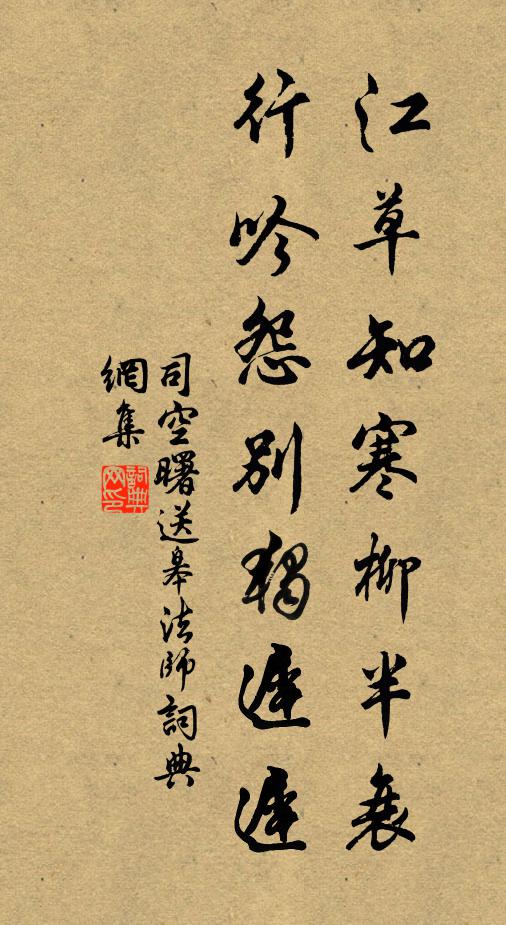 江草知寒柳半衰
行吟怨別獨遲遲
司空曙送皋法師詞典
網集
詞典網印